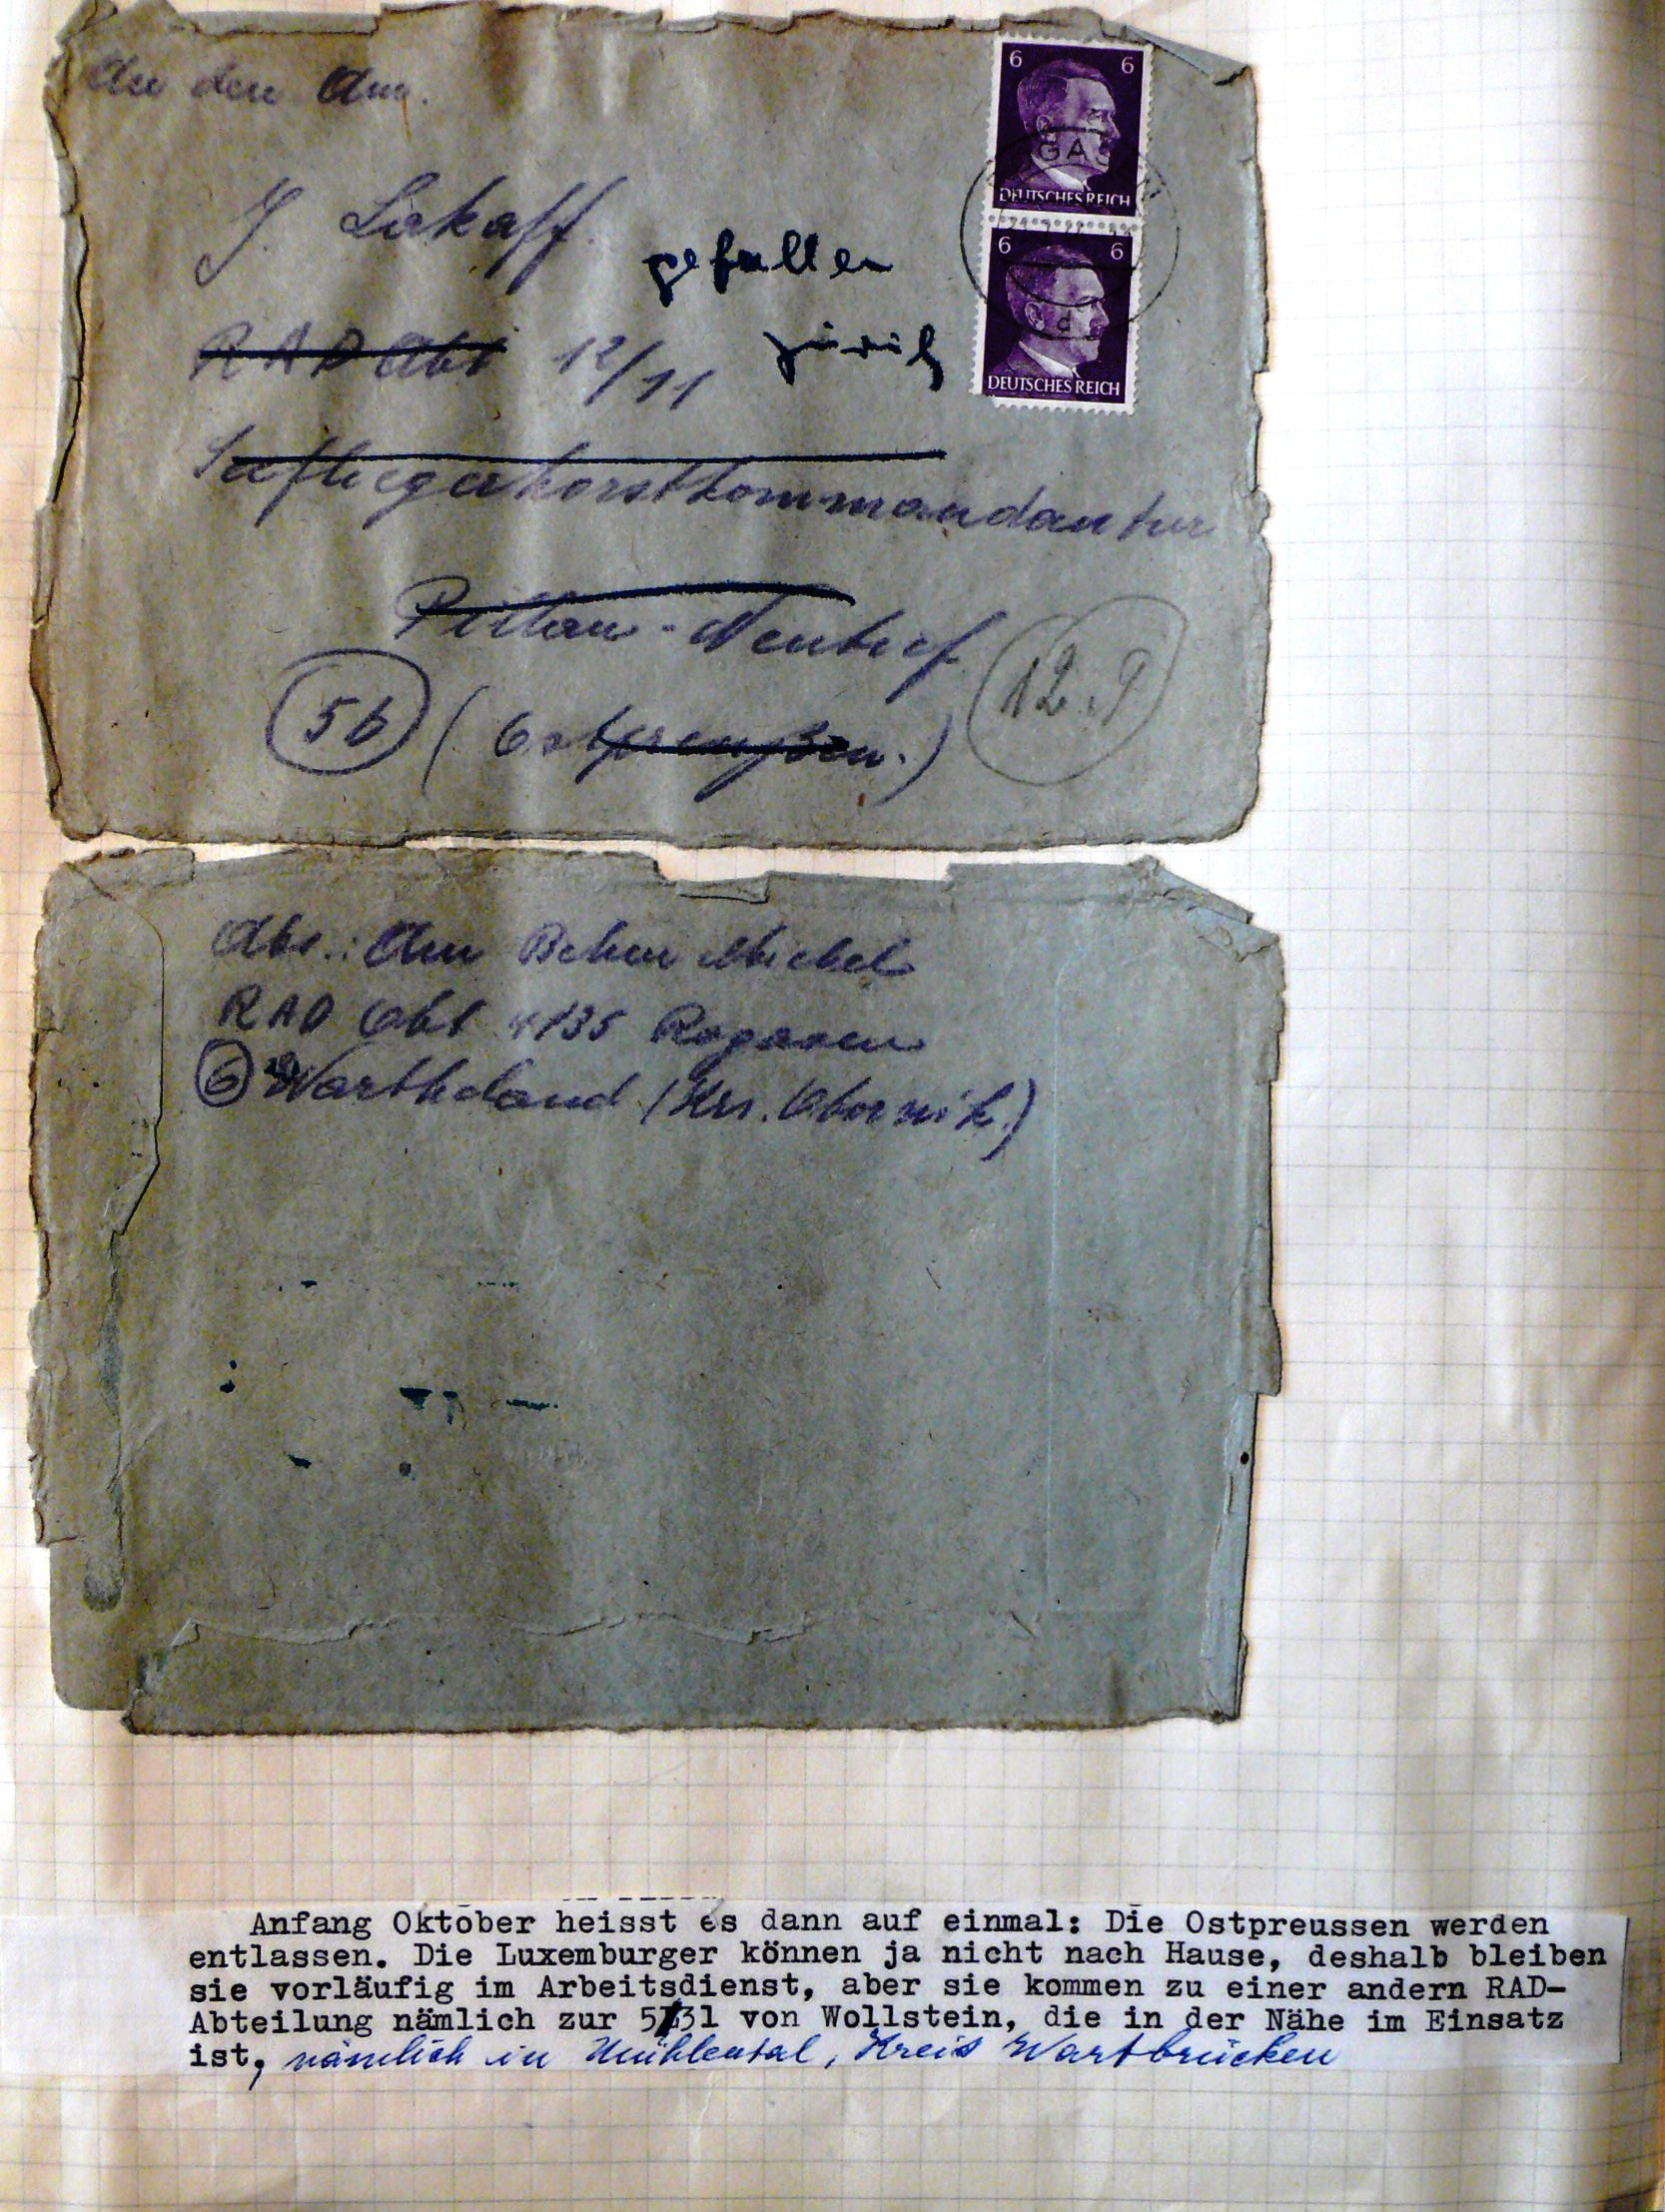 An den Am.
J. Lakaff.
gefallen
RAD Abt 12/11
zurück
Seefliegerhorstkommandantur
Pillau-Neutief
5b (Ostpreußen.)
6 6
DEUTSCHES REICH
6 6
DEUTSCHES REICH
d
Abs.: Am Behm Michel
RAD Abt 4/35 Rogasen
6 Wartheland (Krs. Obornik.)
Anfang Oktober heisst es dann auf einmal: Die Ostpreussen werden
entlassen. Die Luxemburger können ja nicht nach Hause, deshalb bleiben
sie vorläufig im Arbeitsdienst, aber sie kommen zu einer andern RAD-
Abteilung nämlich zur 5/31 von Wollstein, die in der Nähe im Einsatz
ist, nämlich in Mühlental, Kreis Wartbrücken